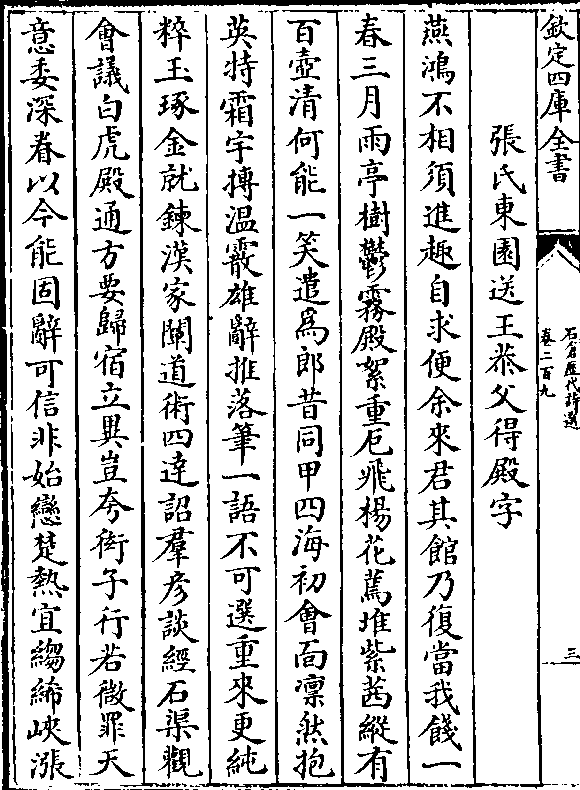 欽定四庫全書
石倉歷代詩選
卷二百九
三
張氏東園送王恭父得殿字
燕鴻不相須進趣自求便余來君其館乃復當我餞一
春三月雨亭樹鬱霧殿絮重卮飛楊花蔫堆紫茜縱有
百壺清何能一笑遣為郎昔同甲四海初會面凛然抱
英特霜宇摶温霰雄辭推落筆一語不可選重來更純
粹玉琢金就鍊漢家闡道術四達詔羣彦談經石渠觀
會議白虎殿通方要歸宿立異豈夸衒子行若微罪天
意委深眷以今能固辭可信非始戀楚熱宜縐絺峽漲